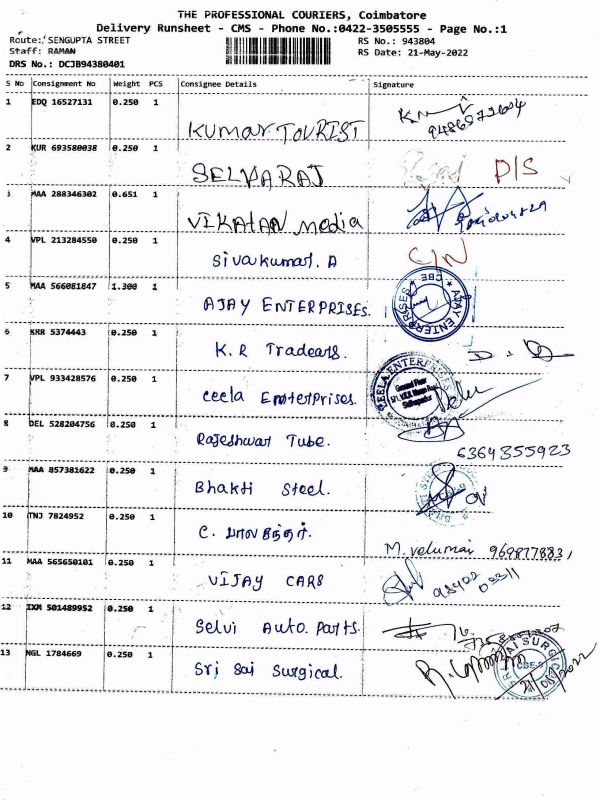 THE PROFESSIONAL COURIERS, Coimbatore
Delivery Runsheet - CMS - Phone No.:0422-3505555 - Page No.:1
Route: SENGUPTA STREET RS No.: 943804
Staff: RAMAN RS Date: 21-May-2022
DRS No.: DCJB94380401
S No Consignment No Weight PCS Consignee Details Signature
1 EDQ 16527131 0.250 1 Kumar TOURIST
2 KUR 693580038 0.250 1 SELVARAJ D/S
3 MAA 288346302 0.651 1 VIKATAN media
4 VPL 213284550 0.250 1 Sivakumar. A C/N
5 MAA 566081847 1.300 1 AJAY ENTERPRISES. AJAY ENTERPRISES CBE
6 KRR 5374443 0.250 1 K. R Tradears.
7 VPL 933428576 0.250 1 Ceela Enoterprises. CEELA ENTERPRISES
8 DEL 528204756 0.250 1 Rajeshwar Tube. 6364355923
9 MAA 857381622 0.250 1 Bhakti Steel.
10 TNJ 7824952 0.250 1 C. பாலசுந்தர். M. velumai
11 MAA 565650101 0.250 1 VIJAY CARS
12 IXM 501489952 0.250 1 Selvi Auto. Parts.
13 NGL 1784669 0.250 1 Sri Sai Surgical. SRI SAI SURGICAL CBE-9